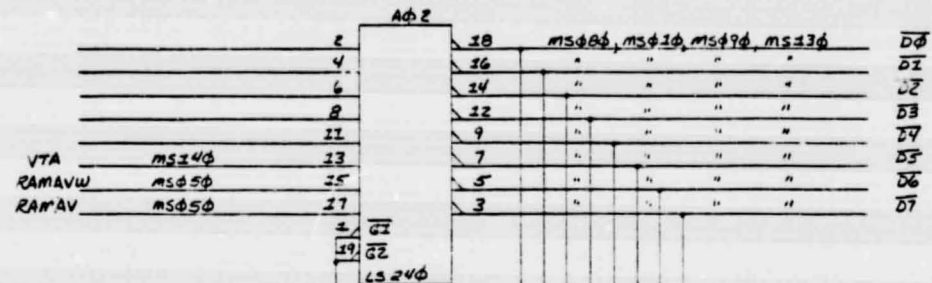 AΦ2
2 18 msΦ8Φ, msΦ1Φ, msΦ9Φ, ms13Φ D̅Φ̅
4 16 " " " " D̅1̅
6 14 " " " " D̅2̅
8 12 " " " " D̅3̅
11 9 " " " " D̅4̅
VTA ms14Φ 13 7 " " " " D̅5̅
RAMAVW msΦ5Φ 15 5 " " " " D̅6̅
RAMAV msΦ5Φ 17 3 " " " " D̅7̅
1 G̅1̅
19 G̅2̅
LS24Φ